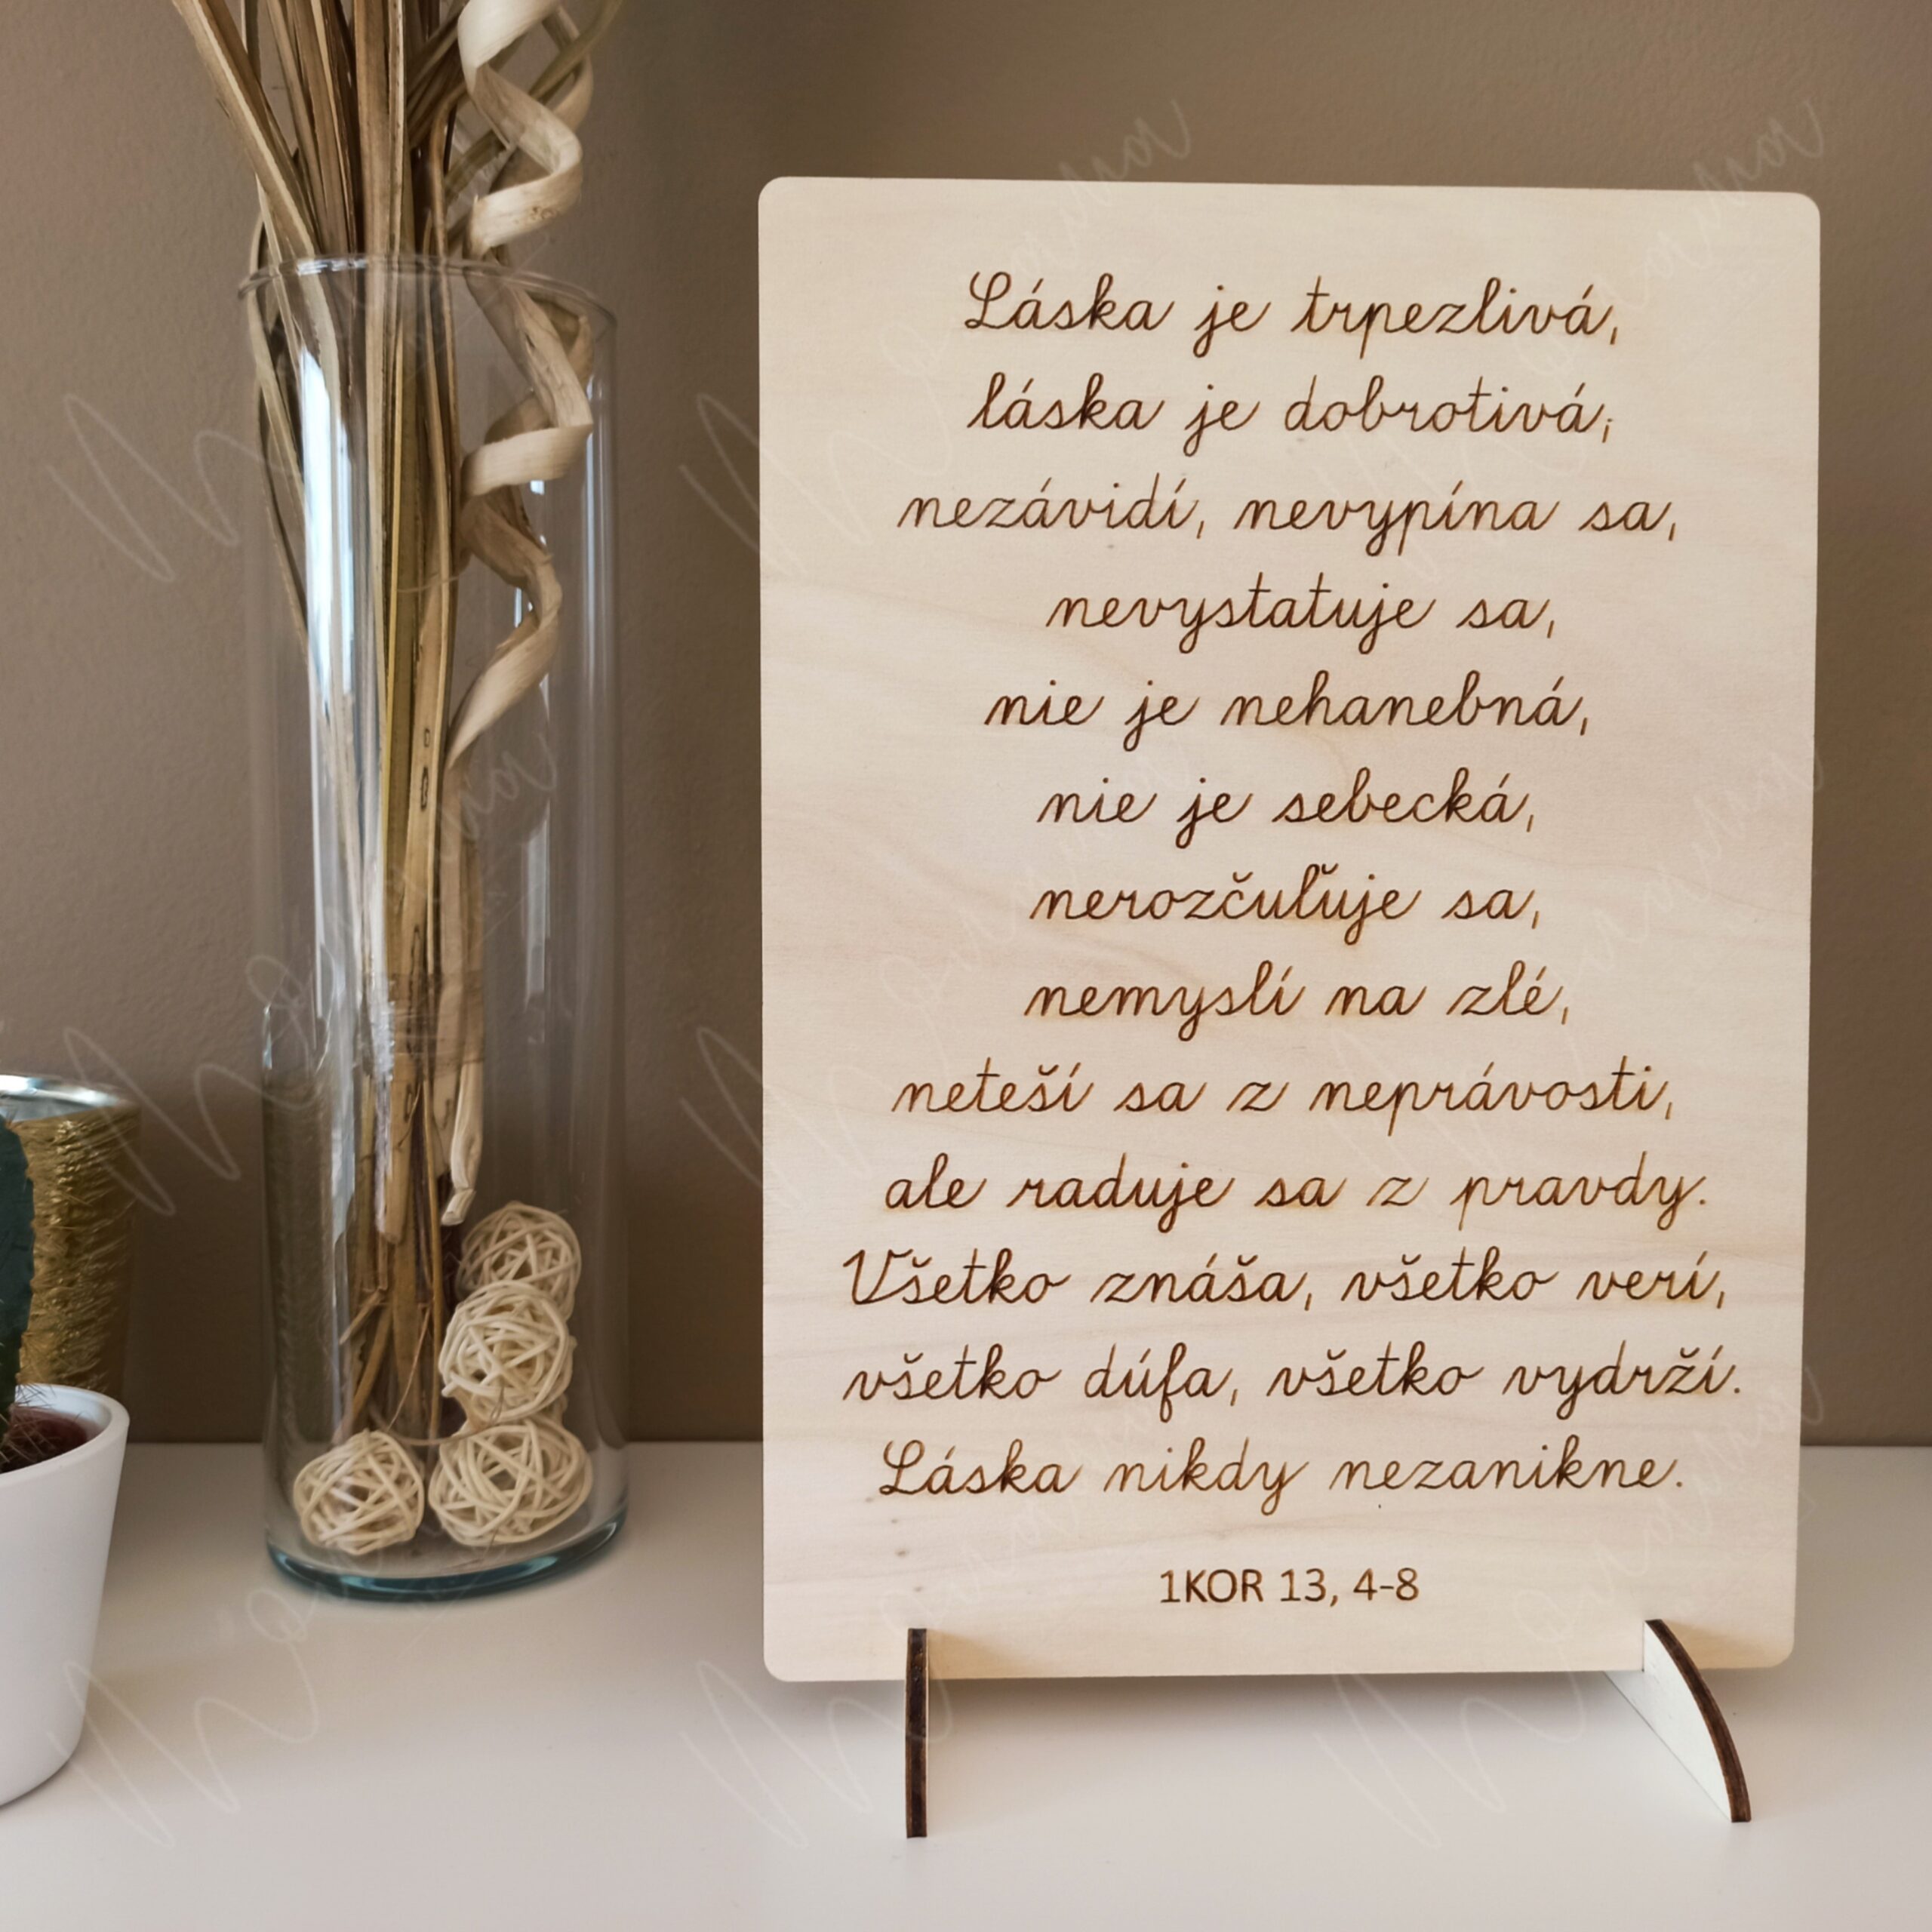 Láska je trpezlivá,
láska je dobrotivá;
nezávidí, nevypína sa,
nevystatuje sa,
nie je nehanebná,
nie je sebecká,
nerozčuľuje sa,
nemyslí na zlé,
neteší sa z neprávosti,
ale raduje sa z pravdy.
Všetko znáša, všetko verí,
všetko dúfa, všetko vydrží.
Láska nikdy nezanikne.
1KOR 13, 4-8